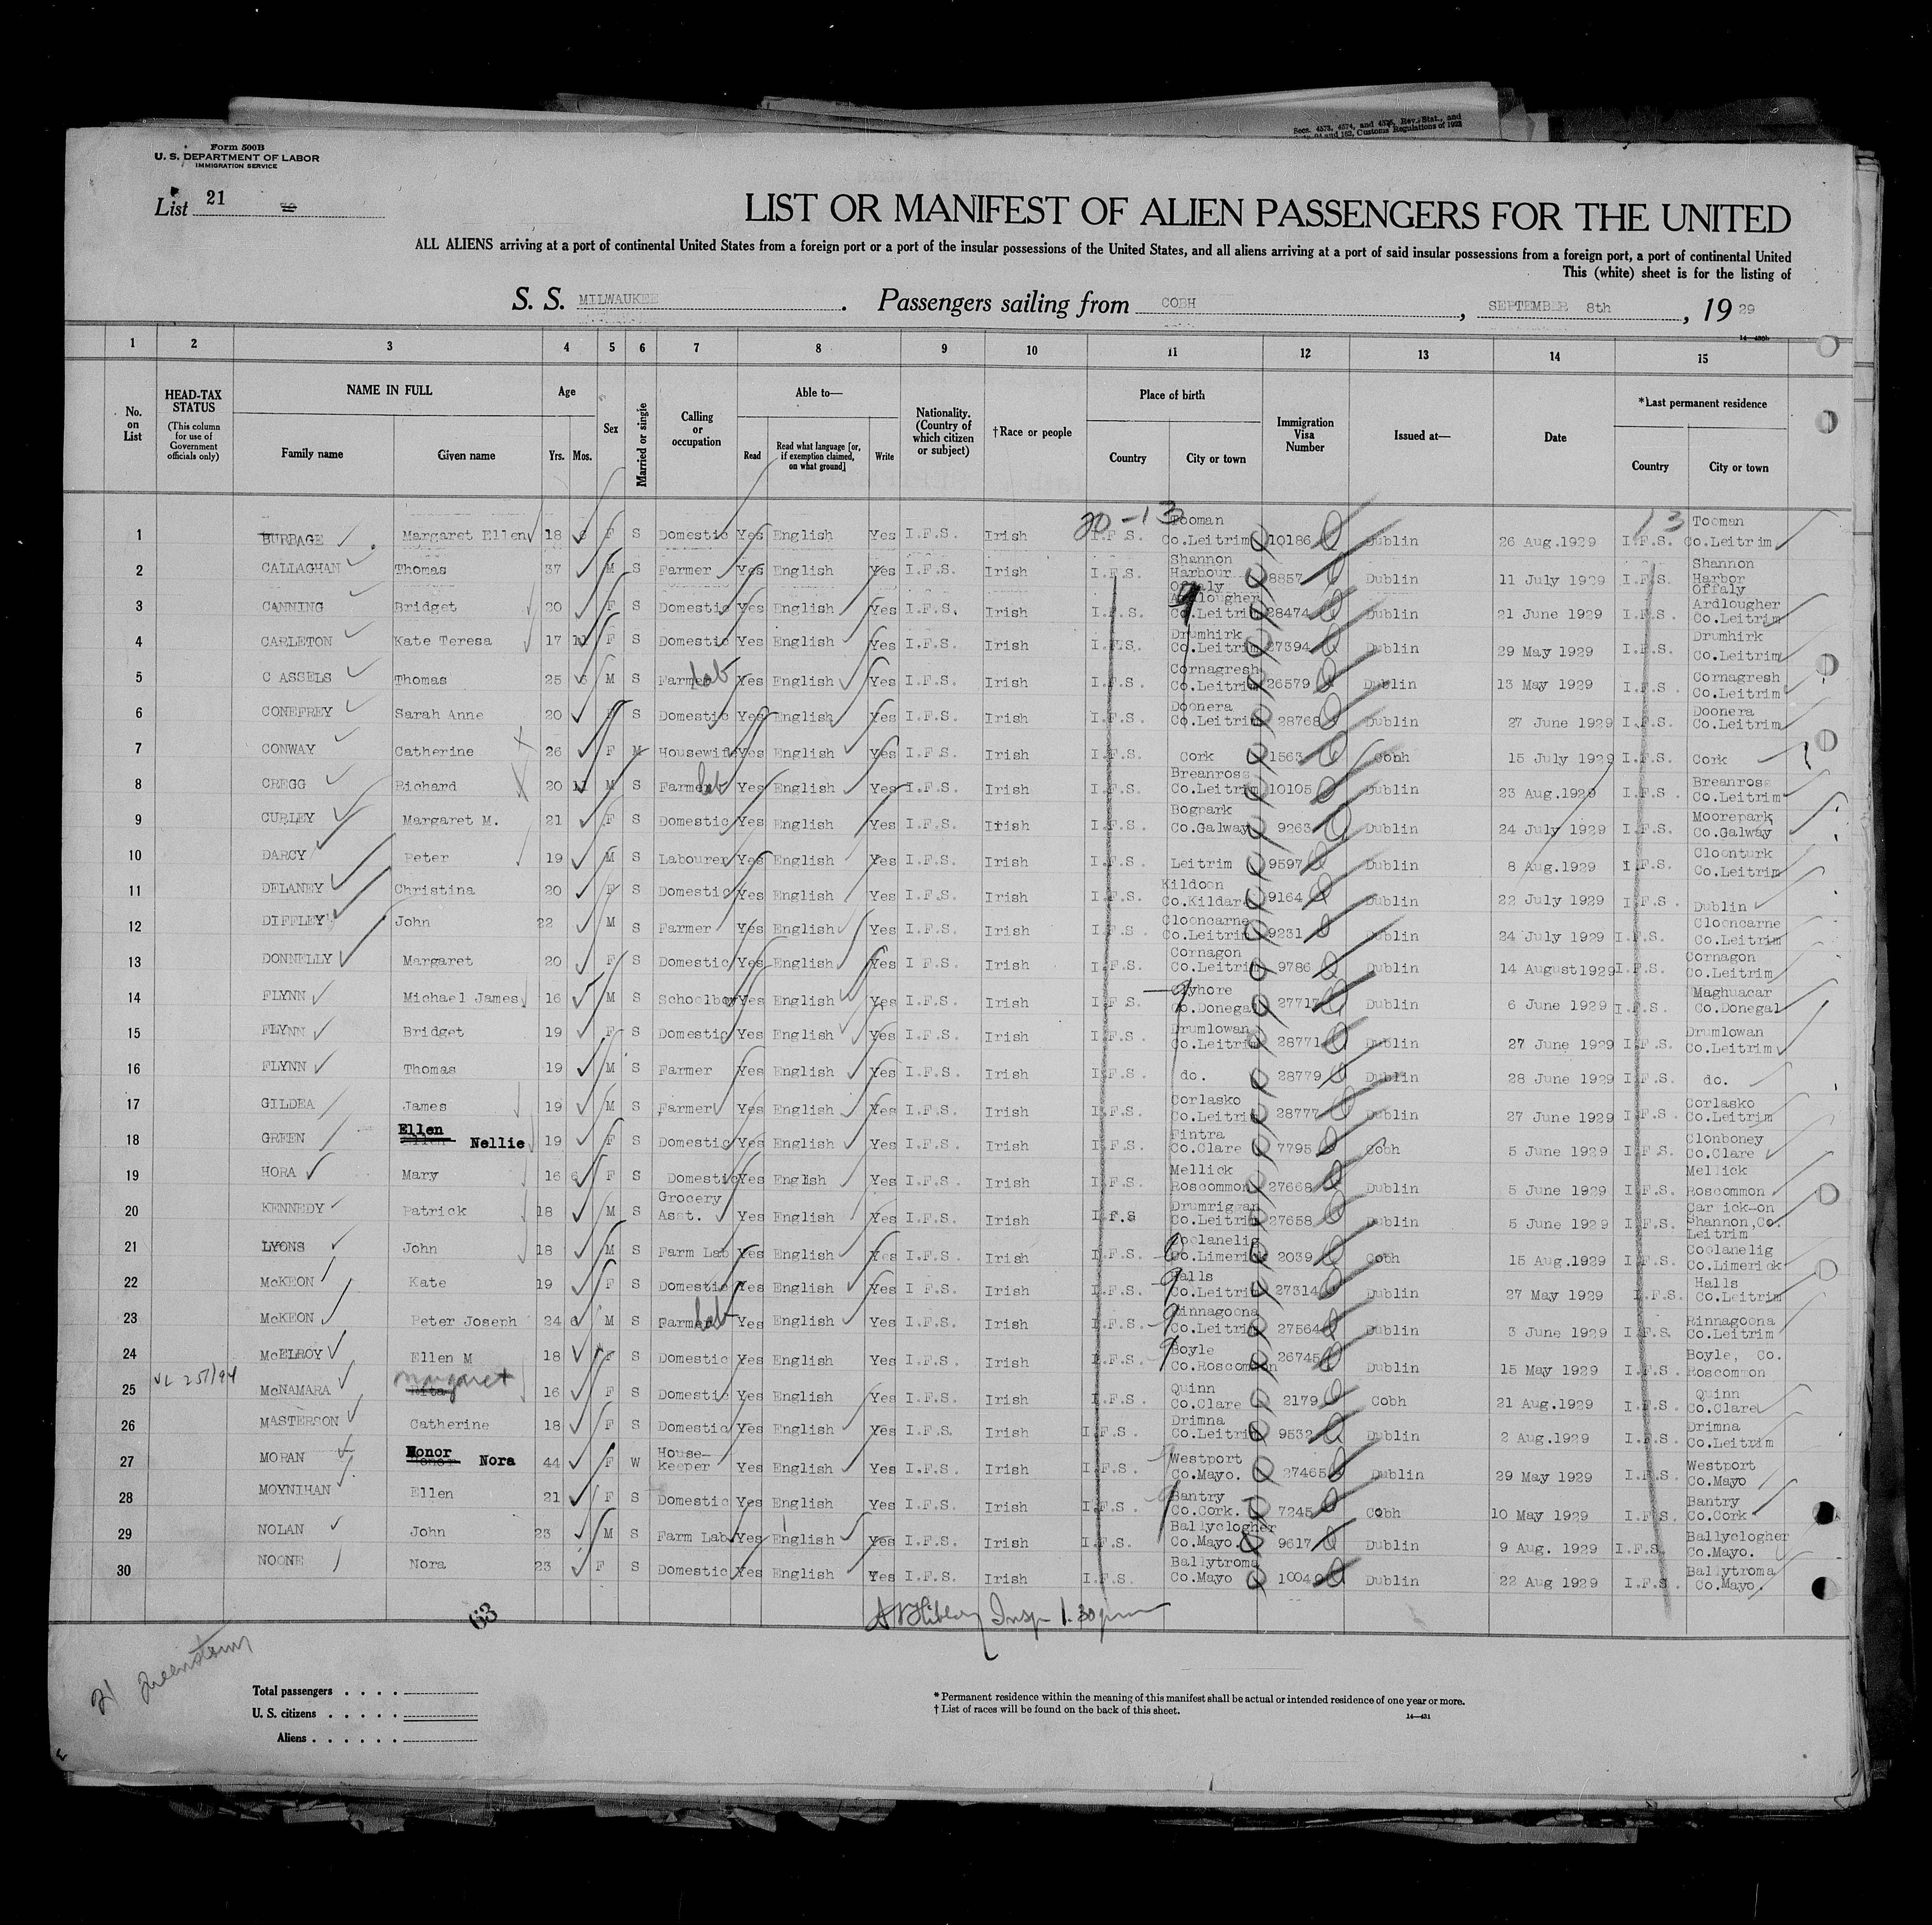 Secs. 4573, 4574, and 4575, Rev. Stat., and
and 162, Customs Regulations of 1923
Form 500B
U. S. DEPARTMENT OF LABOR
IMMIGRATION SERVICE
List 21
LIST OR MANIFEST OF ALIEN PASSENGERS FOR THE UNITED
ALL ALIENS arriving at a port of continental United States from a foreign port or a port of the insular possessions of the United States, and all aliens arriving at a port of said insular possessions from a foreign port, a port of continental United
This (white) sheet is for the listing of
S. S. MILWAUKEE. Passengers sailing from COBH, SEPTEMBER 8th, 19 29
14—430b
1 2 3 4 5 6 7 8 9 10 11 12 13 14 15
No. on List
HEAD-TAX STATUS (This column for use of Government officials only)
NAME IN FULL
Family name Given name
Age
Yrs. Mos.
Sex
Married or single
Calling or occupation
Able to—
Read
Read what language [or, if exemption claimed, on what ground]
Write
Nationality. (Country of which citizen or subject)
†Race or people
Place of birth
Country City or town
Immigration Visa Number
Issued at—
Date
*Last permanent residence
Country City or town
20-13 13
1 BURBAGE Margaret Ellen 18 F S Domestic Yes English Yes I.F.S. Irish I.F.S. Tooman Co.Leitrim 10186 Dublin 26 Aug.1929 I.F.S. Tooman Co.Leitrim
2 CALLAGHAN Thomas 37 M S Farmer Yes English Yes I.F.S. Irish I.F.S. Shannon Harbour Offaly 8857 Dublin 11 July 1929 I.F.S. Shannon Harbor Offaly
3 CANNING Bridget 20 F S Domestic Yes English Yes I.F.S. Irish I.F.S. Ardlougher Co.Leitrim 28474 Dublin 21 June 1929 I.F.S. Ardlougher Co.Leitrim
4 CARLETON Kate Teresa 17 11 F S Domestic Yes English Yes I.F.S. Irish I.F.S. Drumhirk Co.Leitrim 27394 Dublin 29 May 1929 I.F.S. Drumhirk Co.Leitrim
5 C ASSELS Thomas 25 6 M S Farmer Lab Yes English Yes I.F.S. Irish I.F.S. Cornagresh Co.Leitrim 26579 Dublin 13 May 1929 I.F.S. Cornagresh Co.Leitrim
6 CONEFREY Sarah Anne 20 F S Domestic Yes English Yes I.F.S. Irish I.F.S. Doonera Co.Leitrim 28768 Dublin 27 June 1929 I.F.S. Doonera Co.Leitrim
7 CONWAY Catherine 26 F M Housewife Yes English Yes I.F.S. Irish I.F.S. Cork 1563 Cobh 15 July 1929 I.F.S. Cork
8 CREGG Richard 20 11 M S Farmer Lab Yes English Yes I.F.S. Irish I.F.S. Breanross Co.Leitrim 10105 Dublin 23 Aug.1929 I.F.S. Breanross Co.Leitrim
9 CURLEY Margaret M. 21 F S Domestic Yes English Yes I.F.S. Irish I.F.S. Bogpark Co.Galway 9263 Dublin 24 July 1929 I.F.S. Moorepark Co.Galway
10 DARCY Peter 19 M S Labourer Yes English Yes I.F.S. Irish I.F.S. Leitrim 9597 Dublin 8 Aug.1929 I.F.S. Cloonturk Co.Leitrim
11 DELANEY Christina 20 F S Domestic Yes English Yes I.F.S. Irish I.F.S. Kildoon Co.Kildare 9164 Dublin 22 July 1929 I.F.S. Dublin
12 DIFFLEY John 22 M S Farmer Yes English Yes I.F.S. Irish I.F.S. Clooncarne Co.Leitrim 9231 Dublin 24 July 1929 I.F.S. Clooncarne Co.Leitrim
13 DONNELLY Margaret 20 F S Domestic Yes English Yes I F.S. Irish I.F.S. Cornagon Co.Leitrim 9786 Dublin 14 August1929 I.F.S. Cornagon Co.Leitrim
14 FLYNN Michael James 16 M S Schoolboy Yes English Yes I.F.S. Irish I F S. Co.Donegal Dublin 6 June 1929 I.F.S. Maghuacar Co.Donegal
15 FLYNN Bridget 19 F S Domestic Yes English Yes I.F.S. Irish I.F.S. Drumlowan Co.Leitrim 28771 Dublin 27 June 1929 I.F.S. Drumlowan Co.Leitrim
16 FLYNN Thomas 19 M S Farmer Yes English Yes I.F.S. Irish I.F.S. do. 28779 Dublin 28 June 1929 I.F.S. do.
17 GILDEA James 19 M S Farmer Yes English Yes I.F.S. Irish I.F.S. Corlasko Co.Leitrim 28777 Dublin 27 June 1929 I.F.S. Corlasko Co.Leitrim
18 GREEN Ellen Nellie 19 F S Domestic Yes English Yes I.F.S. Irish I.F.S. Fintra Co.Clare 7795 Cobh 5 June 1929 I.F.S. Clonboney Co.Clare
19 HORA Mary 16 6 F S Domestic Yes English Yes I.F.S. Irish I.F.S. Mellick Roscommon 27668 Dublin 5 June 1929 I.F.S. Mellick Roscommon
20 KENNEDY Patrick 18 M S Grocery Asst. Yes English Yes I.F.S. Irish I.F.S Drumriggan Co.Leitrim 27658 Dublin 5 June 1929 I.F.S. Car ick-on Shannon,Co. Leitrim
21 LYONS John 18 M S Farm Lab Yes English Yes I.F.S. Irish I.F.S. Coolanelig Co.Limerick 2039 Cobh 15 Aug.1929 I.F.S. Coolanelig Co.Limerick
22 McKEON Kate 19 F S Domestic Yes English Yes I F.S. Irish I.F.S. Halls Co.Leitrim 27314 Dublin 27 May 1929 I.F.S. Halls Co.Leitrim
23 McKEON Peter Joseph 24 6 M S Farmer Lab Yes English Yes I.F.S. Irish I.F.S. Rinnagoona Co.Leitrim 27564 Dublin 3 June 1929 I.F.S. Rinnagoona Co.Leitrim
24 McELROY Ellen M 18 F S Domestic Yes English Yes I.F.S. Irish I.F.S. Boyle Co.Roscommon 26745 Dublin 15 May 1929 I.F.S. Boyle, Co. Roscommon
25 VL 251/94 McNAMARA Rita Margaret 16 F S Domestic Yes English Yes I.F.S. Irish I.F.S. Quinn Co.Clare 2179 Cobh 21 Aug.1929 I.F.S. Quinn Co.Clare
26 MASTERSON Catherine 18 F S Domestic Yes English Yes I.F.S. Irish I.F.S. Drimna Co.Leitrim 9532 Dublin 2 Aug.1929 I.F.S. Drimna Co.Leitrim
27 MORAN Honor Nora 44 F W House-keeper Yes English Yes I.F.S. Irish I.F.S. Westport Co.Mayo. 27465 Dublin 29 May 1929 I.F.S. Westport Co.Mayo
28 MOYNIHAN Ellen 21 F S Domestic Yes English Yes I.F.S. Irish I.F.S. Bantry Co.Cork. 7245 Cobh 10 May 1929 I.F.S. Bantry Co.Cork
29 NOLAN John 23 M S Farm Lab Yes English Yes I.F.S. Irish I.F.S. Ballyclogher Co.Mayo. 9617 Dublin 9 Aug. 1929 I.F.S. Ballyclogher Co.Mayo.
30 NOONE Nora 23 F S Domestic Yes English Yes I.F.S. Irish I.F.S. Ballytroma Co.Mayo 10049 Dublin 22 Aug 1929 I.F.S. Ballytroma Co.Mayo.
63
Insp 1.30pm
21 Queenstown
Total passengers
U. S. citizens
Aliens
* Permanent residence within the meaning of this manifest shall be actual or intended residence of one year or more.
† List of races will be found on the back of this sheet.
14—431